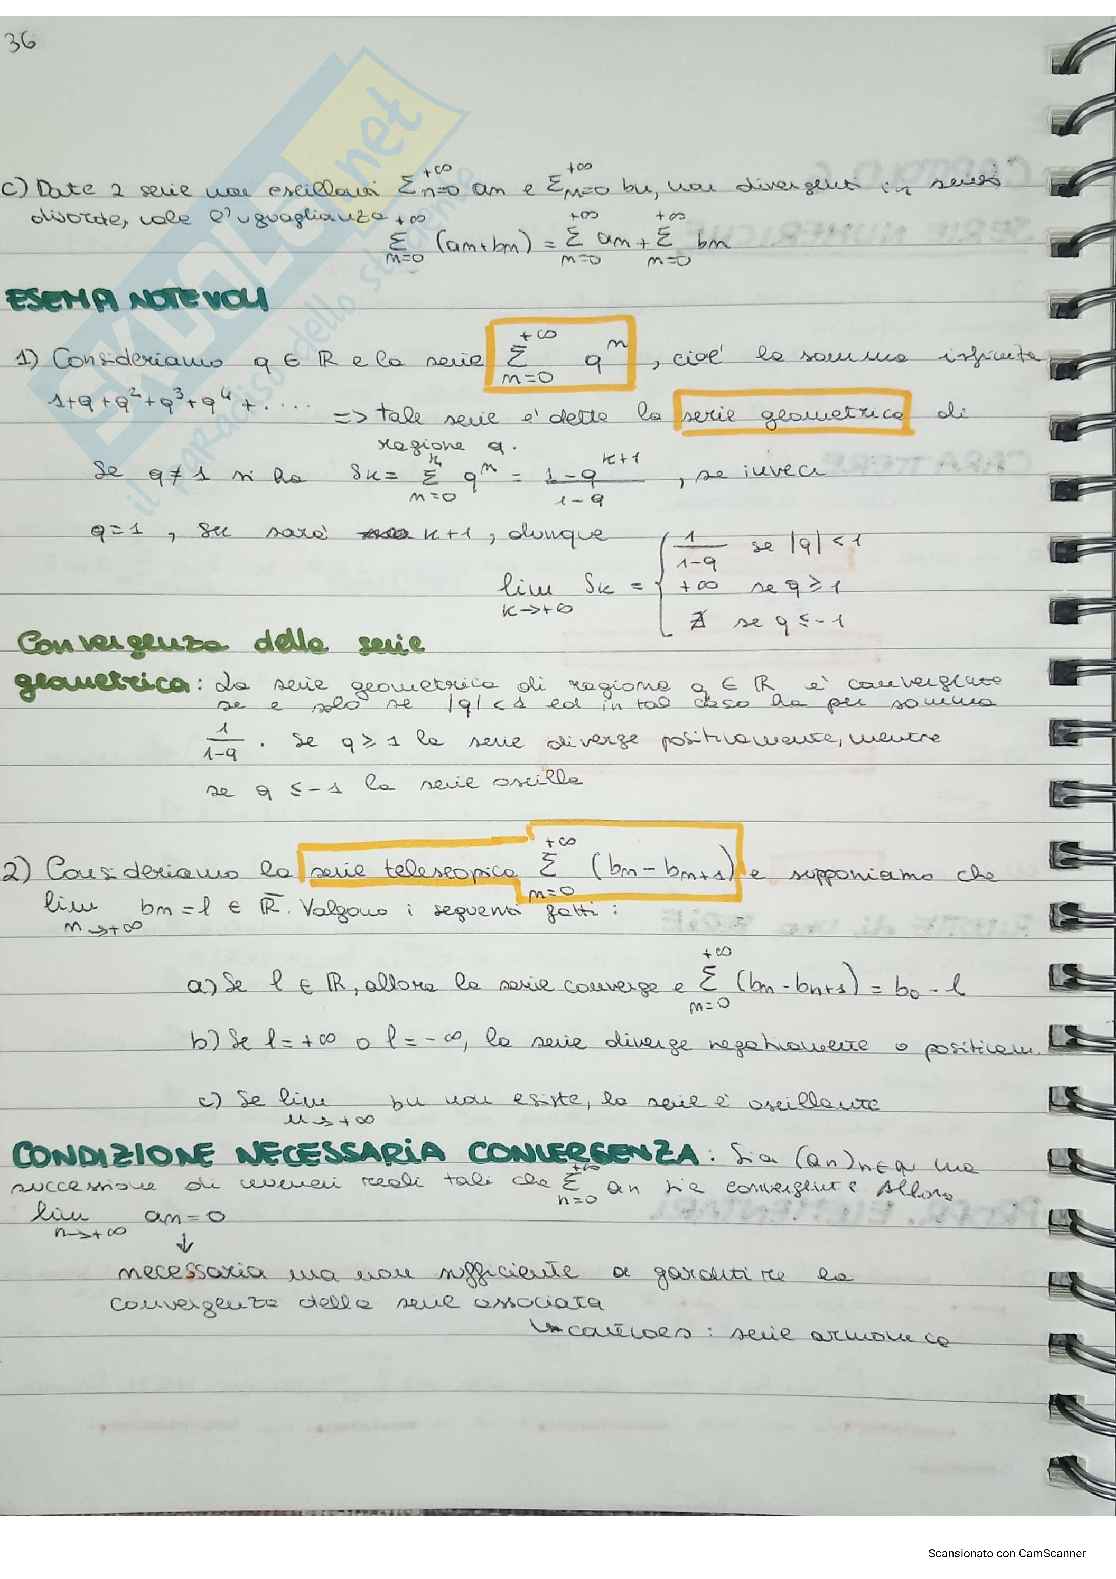 36
c) Date 2 serie non oscillanti Σ_{n=0}^{+∞} an e Σ_{n=0}^{+∞} bn, non divergenti in senso
discorde, vale l'uguaglianza
Σ_{n=0}^{+∞} (an+bn) = Σ_{n=0}^{+∞} an + Σ_{n=0}^{+∞} bn
ESEMPI NOTEVOLI
1) Consideriamo q ∈ ℝ e la serie Σ_{n=0}^{+∞} q^n, cioé la somma infinita
1+q+q²+q³+q⁴+.... => tale serie é detta la serie geometrica di
ragione q.
Se q≠1 si ha Sk = Σ_{n=0}^{k} q^n = (1-q^{k+1})/(1-q), se invece
q=1, Sk sará k+1, dunque
lim_{k→+∞} Sk = { 1/(1-q) se |q|<1
+∞ se q≥1
∄ se q≤-1
Convergenza della serie
geometrica: La serie geometrica di ragione q ∈ ℝ é convergente
se e solo se |q|<1 ed in tal caso ha per somma
1/(1-q). Se q≥1 la serie diverge positivamente, mentre
se q≤-1 la serie oscilla
2) Consideriamo la serie telescopica Σ_{n=0}^{+∞} (bn-bn+1) e supponiamo che
lim_{n→+∞} bn=l ∈ ℝ̄. Valgono i seguenti fatti:
a) Se l ∈ ℝ, allora la serie converge e Σ_{n=0}^{+∞} (bn-bn+1) = b0-l
b) Se l=+∞ o l=-∞, la serie diverge negativamente o positivam.
c) Se lim_{n→+∞} bn non esiste, la serie é oscillante
CONDIZIONE NECESSARIA CONVERGENZA: Sia (an)n∈ una
successione di numeri reali tali che Σ_{n=0}^{+∞} an sia convergente Allora
lim_{n→+∞} an=0
↓
necessaria ma non sufficiente a garantire la
convergenza della serie associata
↳ : serie armonica
SKUOLA.net
il paradiso dello studente
Scansionato con CamScanner